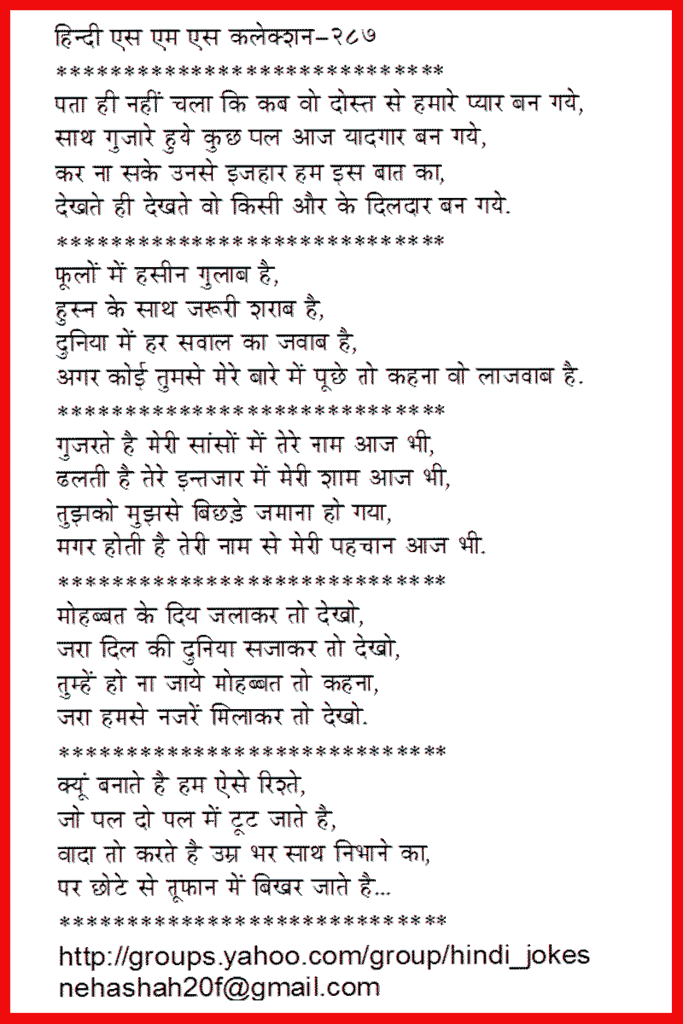 हिन्दी एस एम एस कलेक्शन–२८७
*****************************
पता ही नहीं चला कि कब वो दोस्त से हमारे प्यार बन गये,
साथ गुजारे हुये कुछ पल आज यादगार बन गये,
कर ना सके उनसे इजहार हम इस बात का,
देखते ही देखते वो किसी और के दिलदार बन गये.
*****************************
फूलों में हसीन गुलाब है,
हुस्न के साथ जरूरी शराब है,
दुनिया में हर सवाल का जवाब है,
अगर कोई तुमसे मेरे बारे में पूछे तो कहना वो लाजवाब है.
*****************************
गुजरते है मेरी सांसों में तेरे नाम आज भी,
ढलती है तेरे इन्तजार में मेरी शाम आज भी,
तुझको मुझसे बिछड़े जमाना हो गया,
मगर होती है तेरी नाम से मेरी पहचान आज भी.
*****************************
मोहब्बत के दिय जलाकर तो देखो,
जरा दिल की दुनिया सजाकर तो देखो,
तुम्हें हो ना जाये मोहब्बत तो कहना,
जरा हमसे नजरें मिलाकर तो देखो.
*****************************
क्यूं बनाते है हम ऐसे रिश्ते,
जो पल दो पल में टूट जाते है,
वादा तो करते है उम्र भर साथ निभाने का,
पर छोटे से तूफान में बिखर जाते है...
*****************************
http://groups.yahoo.com/group/hindi_jokes
nehashah20f@gmail.com